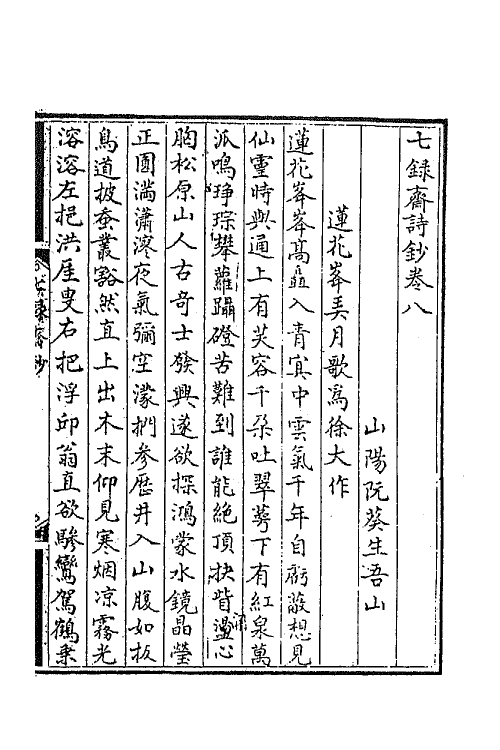 七録齋詩鈔卷八
山陽阮葵生吾山
蓮花峯弄月歌為徐大作
蓮花峯峯高矗入青冥中雲氣千年自虧蔽想見
仙靈時與通上有芙容千朶吐翠萼下有紅泉萬
派鳴琤琮攀蘿躡磴苦難到誰能絶頂抉眥盪心
胸松原山人古奇士發興遂欲探鴻蒙水鏡晶瑩
正圓滿瀟漻夜氣彌空濛捫參歷井入山腹如扳
鳥道披蚕叢豁然直上出木末仰見寒烟凉霧光
溶溶左挹洪厓叟右把浮邱翁直欲驂鸞駕鶴乗